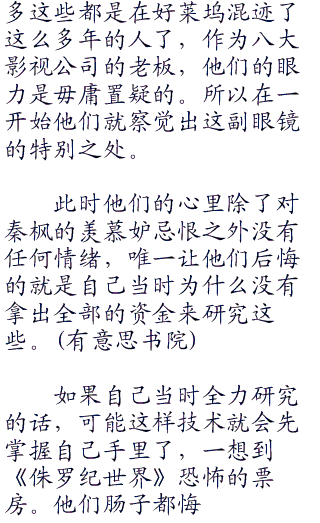 多这些都是在好菜坞混迹了
这么多年的人了，作为八大
影视公司的老板，他们的眼
力是毋庸置疑的。所以在一
开始他们就察觉出这副眼镜
的特别之处。
此时他们的心里除了对
秦枫的羡慕妒忌恨之外没有
任何情绪，唯一让他们后悔
的就是自己当时为什么没有
拿出全部的资金来研究这
些。(有意思书院)
如果自己当时全力研究
的话，可能这样技术就会先
掌握自己手里了，一想到
《侏罗纪世界》恐怖的票
房。他们肠子都悔